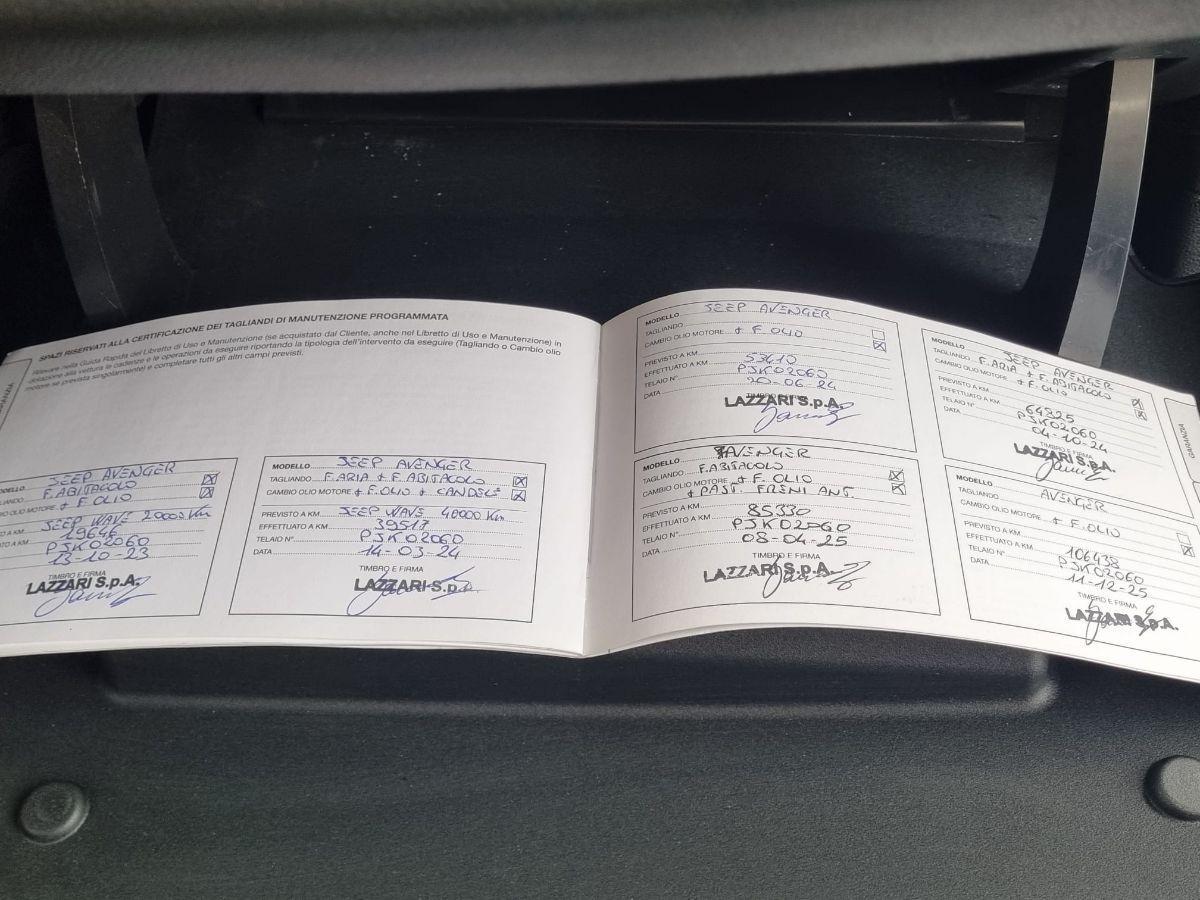 SPAZI RISERVATI ALLA CERTIFICAZIONE DEI TAGLIANDI DI MANUTENZIONE PROGRAMMATA
Rilevare nella Guida Rapida del Libretto di Uso e Manutenzione (se acquistato dal Cliente, anche nel Libretto di Uso e Manutenzione) in
dotazione alla vettura le cadenze e le operazioni da eseguire riportando la tipologia dell'intervento da eseguire (Tagliando o Cambio olio
motore se prevista singolarmente) e completare tutti gli altri campi previsti.
JEEP AVENGER
F. ABITACOLO
+ F. OLIO
JEEP WAVE 20000 Km
19646
PJK02060
13-10-23
TIMBRO E FIRMA
LAZZARI S.p.A.
MODELLO JEEP AVENGER
TAGLIANDO F. ARIA + F. ABITACOLO
CAMBIO OLIO MOTORE + F. OLIO + CANDELE
PREVISTO A KM JEEP WAVE 40000 Km
EFFETTUATO A KM 39517
TELAIO N° PJK02060
DATA 14-03-24
TIMBRO E FIRMA
LAZZARI S.p.A.
MODELLO JEEP AVENGER
TAGLIANDO
CAMBIO OLIO MOTORE + F. OLIO
PREVISTO A KM
EFFETTUATO A KM 53610
TELAIO N° PJK02060
DATA 20-06-24
TIMBRO E FIRMA
LAZZARI S.p.A.
MODELLO JEEP AVENGER
TAGLIANDO F. ARIA + F. ABITACOLO
CAMBIO OLIO MOTORE + F. OLIO
PREVISTO A KM
EFFETTUATO A KM 64825
TELAIO N° PJK02060
DATA 04-10-24
TIMBRO E FIRMA
LAZZARI S.p.A.
MODELLO AVENGER
TAGLIANDO F. ABITACOLO
CAMBIO OLIO MOTORE + F. OLIO
+ PAST. FRENI ANT.
PREVISTO A KM
EFFETTUATO A KM 85330
TELAIO N° PJK02060
DATA 08-04-25
TIMBRO E FIRMA
LAZZARI S.p.A.
MODELLO AVENGER
TAGLIANDO
CAMBIO OLIO MOTORE + F. OLIO
PREVISTO A KM
EFFETTUATO A KM 106438
TELAIO N° PJK02060
DATA 11-12-25
TIMBRO E FIRMA
LAZZARI S.p.A.
GARANZIA